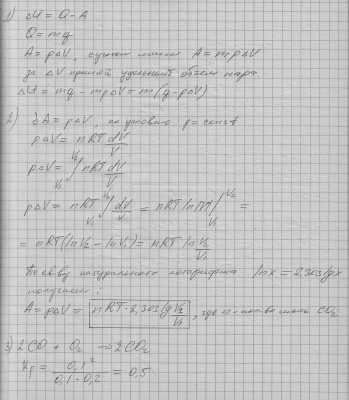 1) ΔU = Q - A
Q = mq
A = pΔV, с учётом массы A = mpΔV
за ΔV принять удельный объём пара
ΔU = mq - mpΔV = m(q - pΔV)
2) δA = pΔV, по условию p = const
pΔV = nRT dV/V
pΔV = V1∫V2 nRT dV/V
pΔV = nRT V1∫V2 dV/V = nRT ln|V| |V1 V2 =
= nRT(lnV2 - lnV1) = nRT ln V2/V1
По св-ву натурального логарифма lnx = 2,303lgx
получаем:
A = pΔV = nRT·2,303lg V2/V1, где n - кол-во моль CO2
3) 2CO + O2 → 2CO2
Kp = 0,1²/0,1·0,2 = 0,5